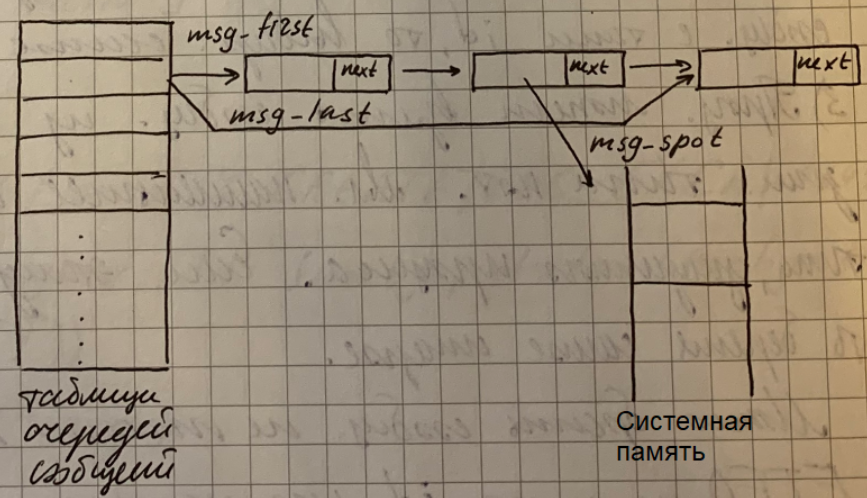 msg-first
next
next
next
msg-last
msg-spot
таблица
очередей
сообщений
Системная
память